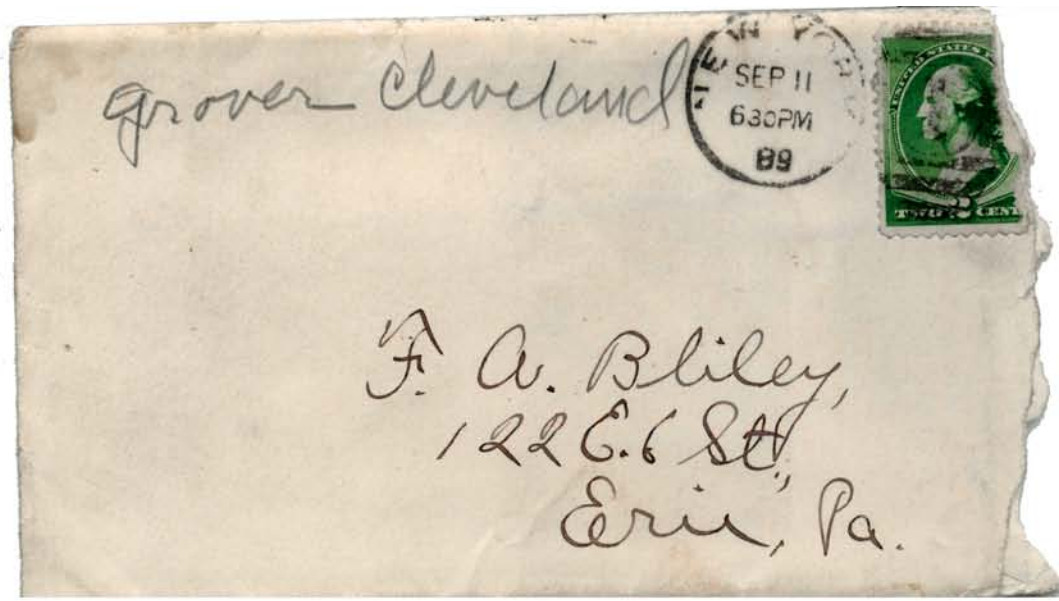 grover Cleveland
NEW YORK
SEP 11
630PM
89
UNITED STATES
TWO 2 CENT
F. A. Bliley,
122 E. 6 St.,
Erie, Pa.